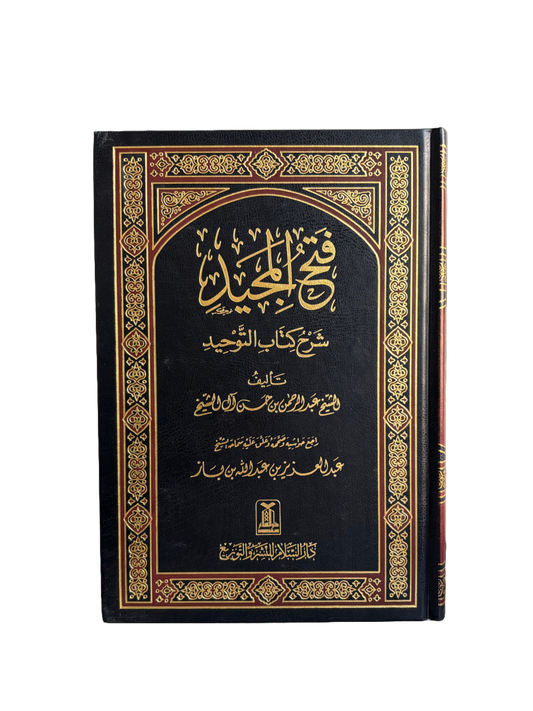 فَتْحُ المَجِيْدِ
شَرْحُ كِتَابِ التَّوْحِيْدِ
تَأليفُ
الشيخ عبد الرحمن بن حسن آل الشيخ
راجع حواشيه وصححه وعلق عليه سماحة الشيخ
عبد العزيز بن عبد الله بن باز
دار السلام للنشر والتوزيع